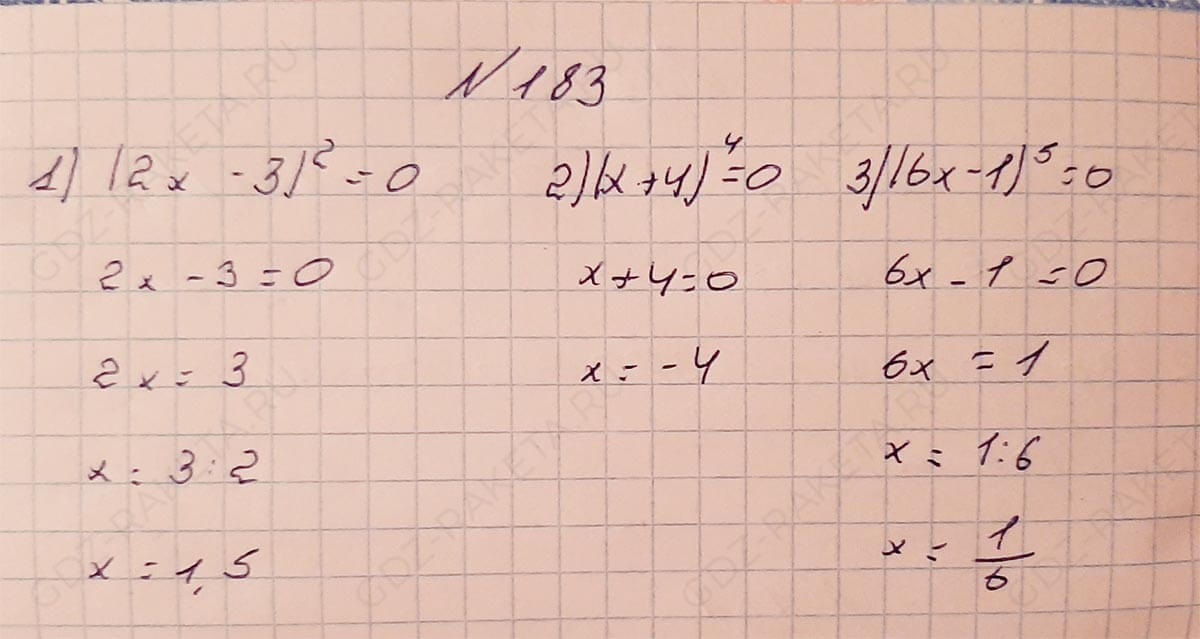 №183
1) (2x - 3)² = 0
2x - 3 = 0
2x = 3
x = 3:2
x = 1,5
2) (x + 4)⁴ = 0
x + 4 = 0
x = -4
3) (6x - 1)⁵ = 0
6x - 1 = 0
6x = 1
x = 1:6
x = 1/6
GDZ-RAKETA.RU